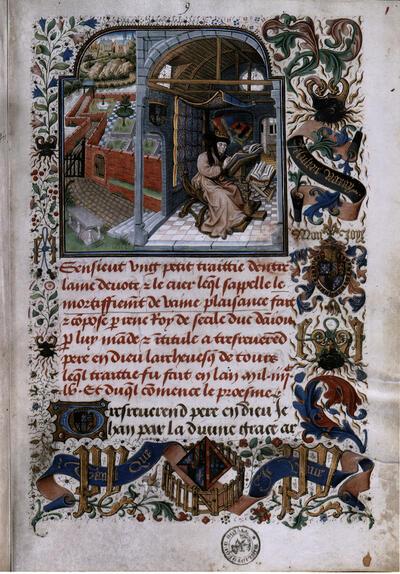 9
1
Sensieut ung petit traittie dentre
lame devote & le cuer leql sappelle le
mortiffient de vaine plaisance fait
& compose p rene Roy de secile duc daniou
p luy mande & intitule a tresreverend
pere en dieu larchevesq de tours
leql traittie fu fait en lan mil iiii
lv Et duql comence le proesme
Tresreverend pere en dieu Je
han par la divine grace ar